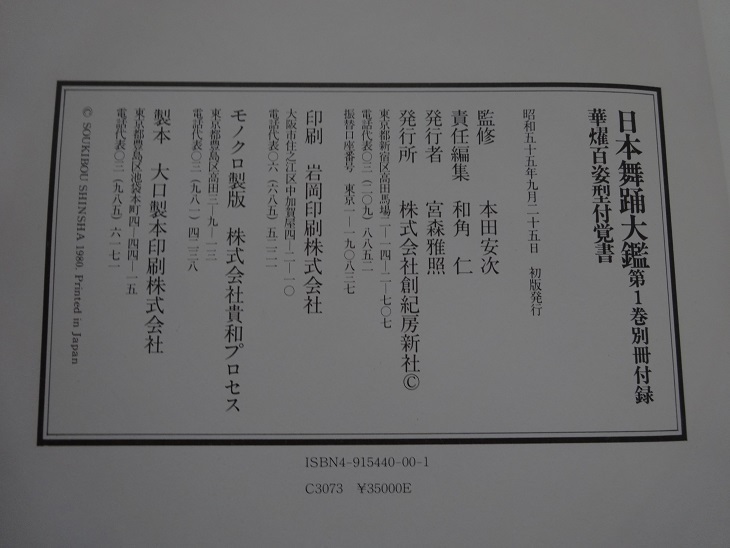 日本舞踊大鑑第1巻別冊付録
華燿百姿型付覚書
昭和五十五年九月二十五日　初版発行
監修　本田安次
責任編集　和角　仁
発行者　宮森雅照
発行所　株式会社創紀房新社©
東京都新宿区高田馬場二―一四―二―七〇七
電話代表〇三（二〇九）八八五二
振替口座番号　東京一―一九〇八三七
印刷　岩岡印刷株式会社
大阪市住之江区中加賀屋四―二―一〇
電話代表〇六（六八五）五二二一
モノクロ製版　株式会社貴和プロセス
東京都豊島区高田三―九―一三
電話代表〇三（九八二）四二三八
製本　大口製本印刷株式会社
東京都豊島区池袋本町四―四四―一五
電話代表〇三（九八五）六一七一
© SOUKIBOU SHINSHA 1980. Printed in Japan
ISBN4-915440-00-1
C3073　¥35000E